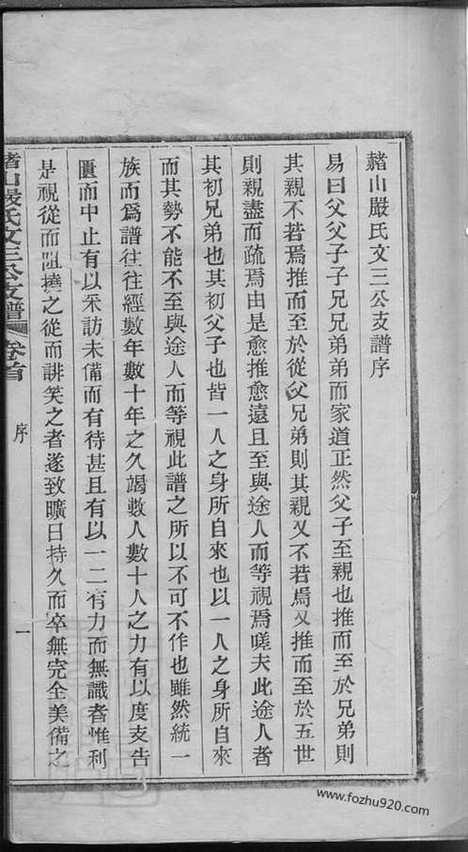 赭山嚴氏文三公支譜序
易曰父父子子兄兄弟弟而家道正然父子至親也推而至於兄弟則
其親不若焉推而至於從父兄弟則其親又不若焉又推而至於五世
則親盡而疏焉由是愈推愈遠且至與途人而等視焉嗟夫此途人者
其初兄弟也其初父子也皆一人之身所自來也以一人之身所自來
而其勢不能不至與途人而等視此譜之所以不可不作也雖然統一
族而爲譜往往經數年數十年之久竭數人數十人之力有以度支告
匱而中止有以采訪未備而有待甚且有以一二有力而無識者惟利
是視從而阻撓之從而誹笑之者遂致曠日持久而卒無完全美備之
赭山嚴氏文三公支譜 卷首
序
一
www.fozhu920.com